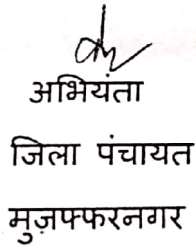 अभियंता
जिला पंचायत
मुज़फ्फरनगर